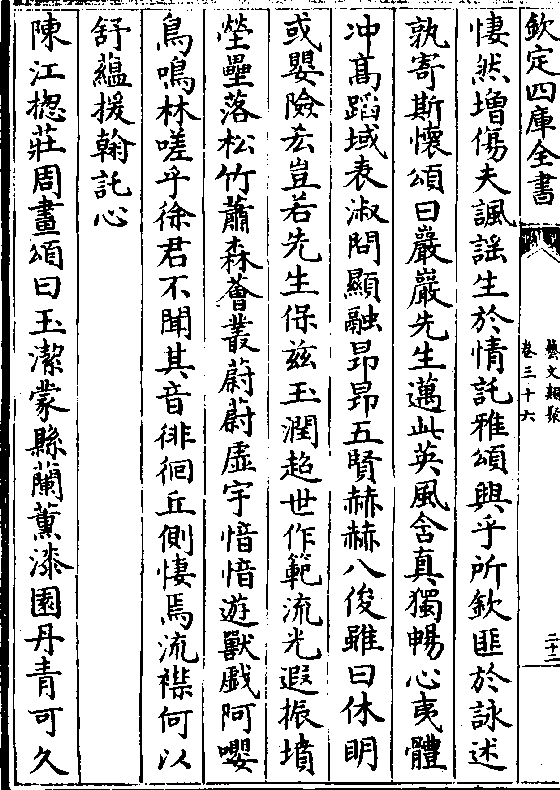 欽定四庫全書
藝文類聚
卷三十六
二十二
悽然增傷夫諷謡生於情託雅頌興乎所欽匪於詠述
孰寄斯懷頌曰巖巖先生邁此英風含真獨暢心夷體
冲髙蹈域表淑問顯融昂昂五賢赫赫八俊雖曰休明
或嬰險厷豈若先生保兹玉潤超世作範流光遐振墳
塋壘落松竹蕭森薈叢蔚蔚虛宇愔愔遊獸戲阿嚶
鳥鳴林嗟乎徐君不聞其音徘徊丘側悽焉流襟何以
舒藴援翰託心
陳江揔莊周畫頌曰玉潔蒙縣蘭薫漆園丹青可久